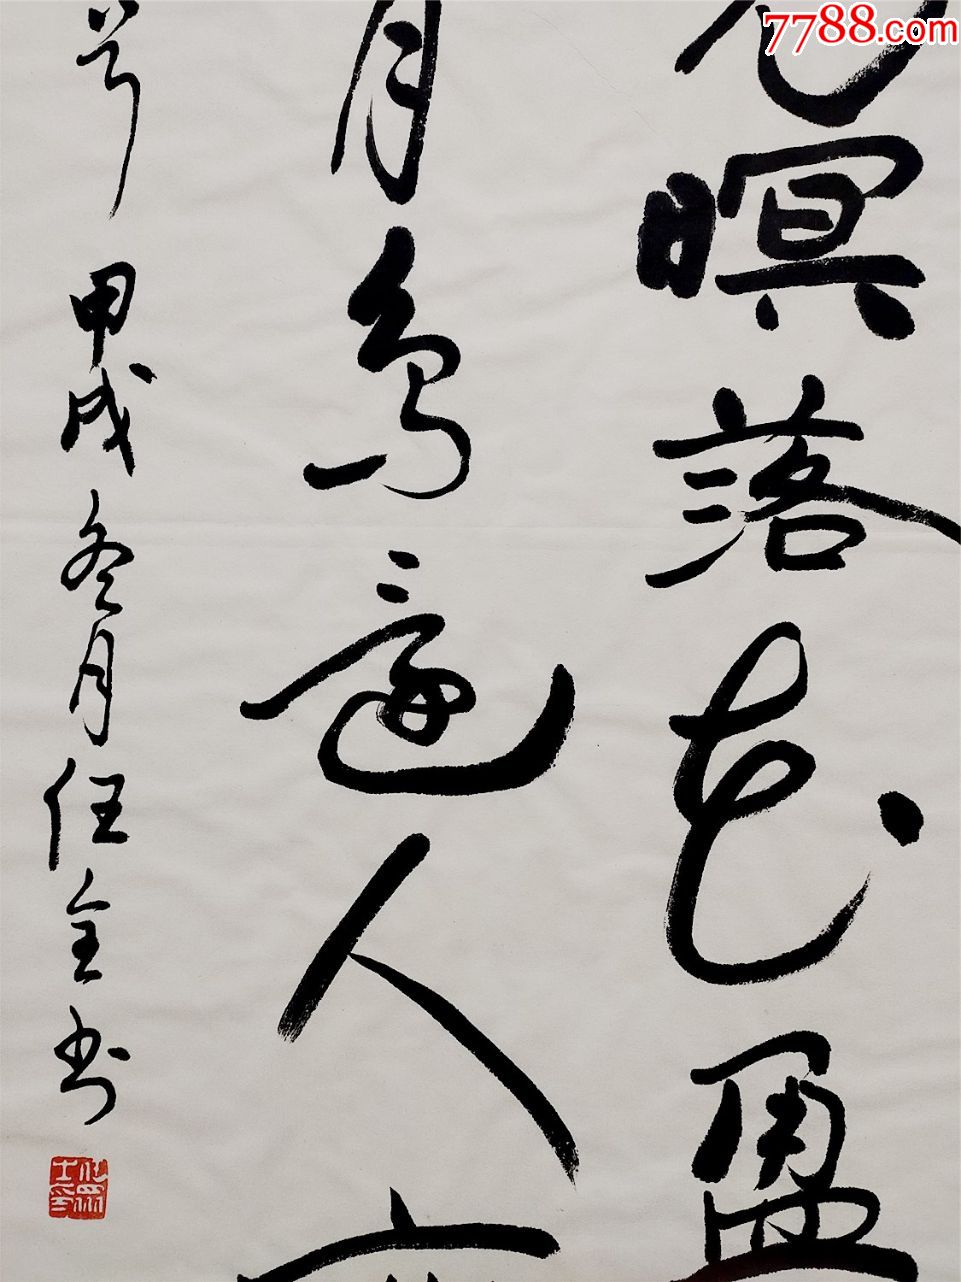 7788.com
暝落花盈
月鳥還人
甲戌冬月任全书